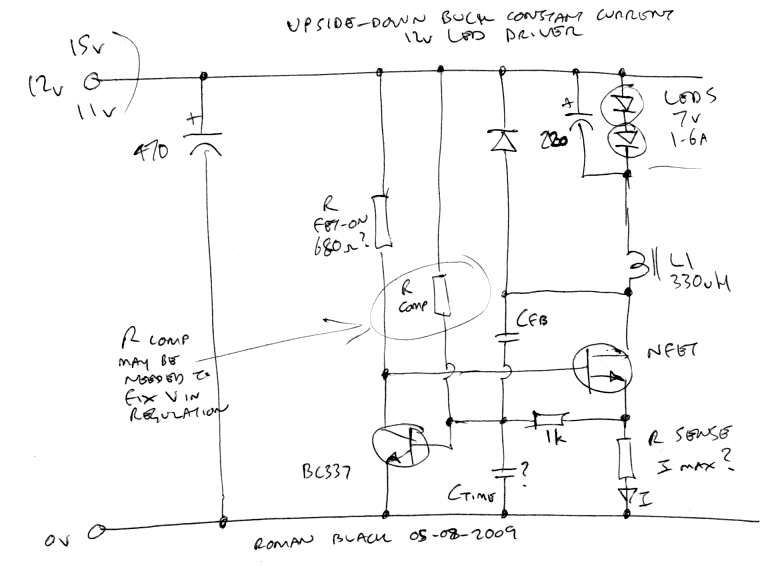 UPSIDE-DOWN BUCK CONSTANT CURRENT
12V LED DRIVER
15V
12V
11V
+
470
R
FET-ON
680Ω?
R
COMP
+
220
LEDS
7V
1.6A
L1
330uH
CFB
NFET
R COMP
MAY BE
NEEDED TO
FIX VIN
REGULATION
BC337
1K
R SENSE
I MAX?
?
CTIME
I
0V
ROMAN BLACK 05-08-2009